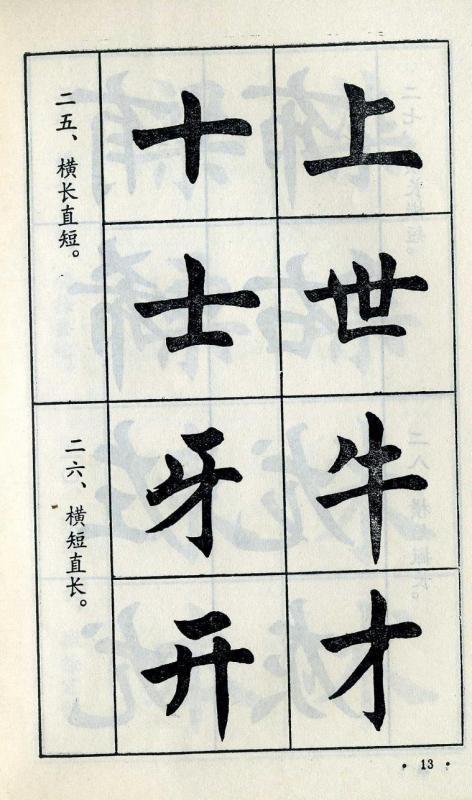 二五、横长直短。
十 上
士 世
二六、横短直长。
牙 牛
开 才
• 13 •